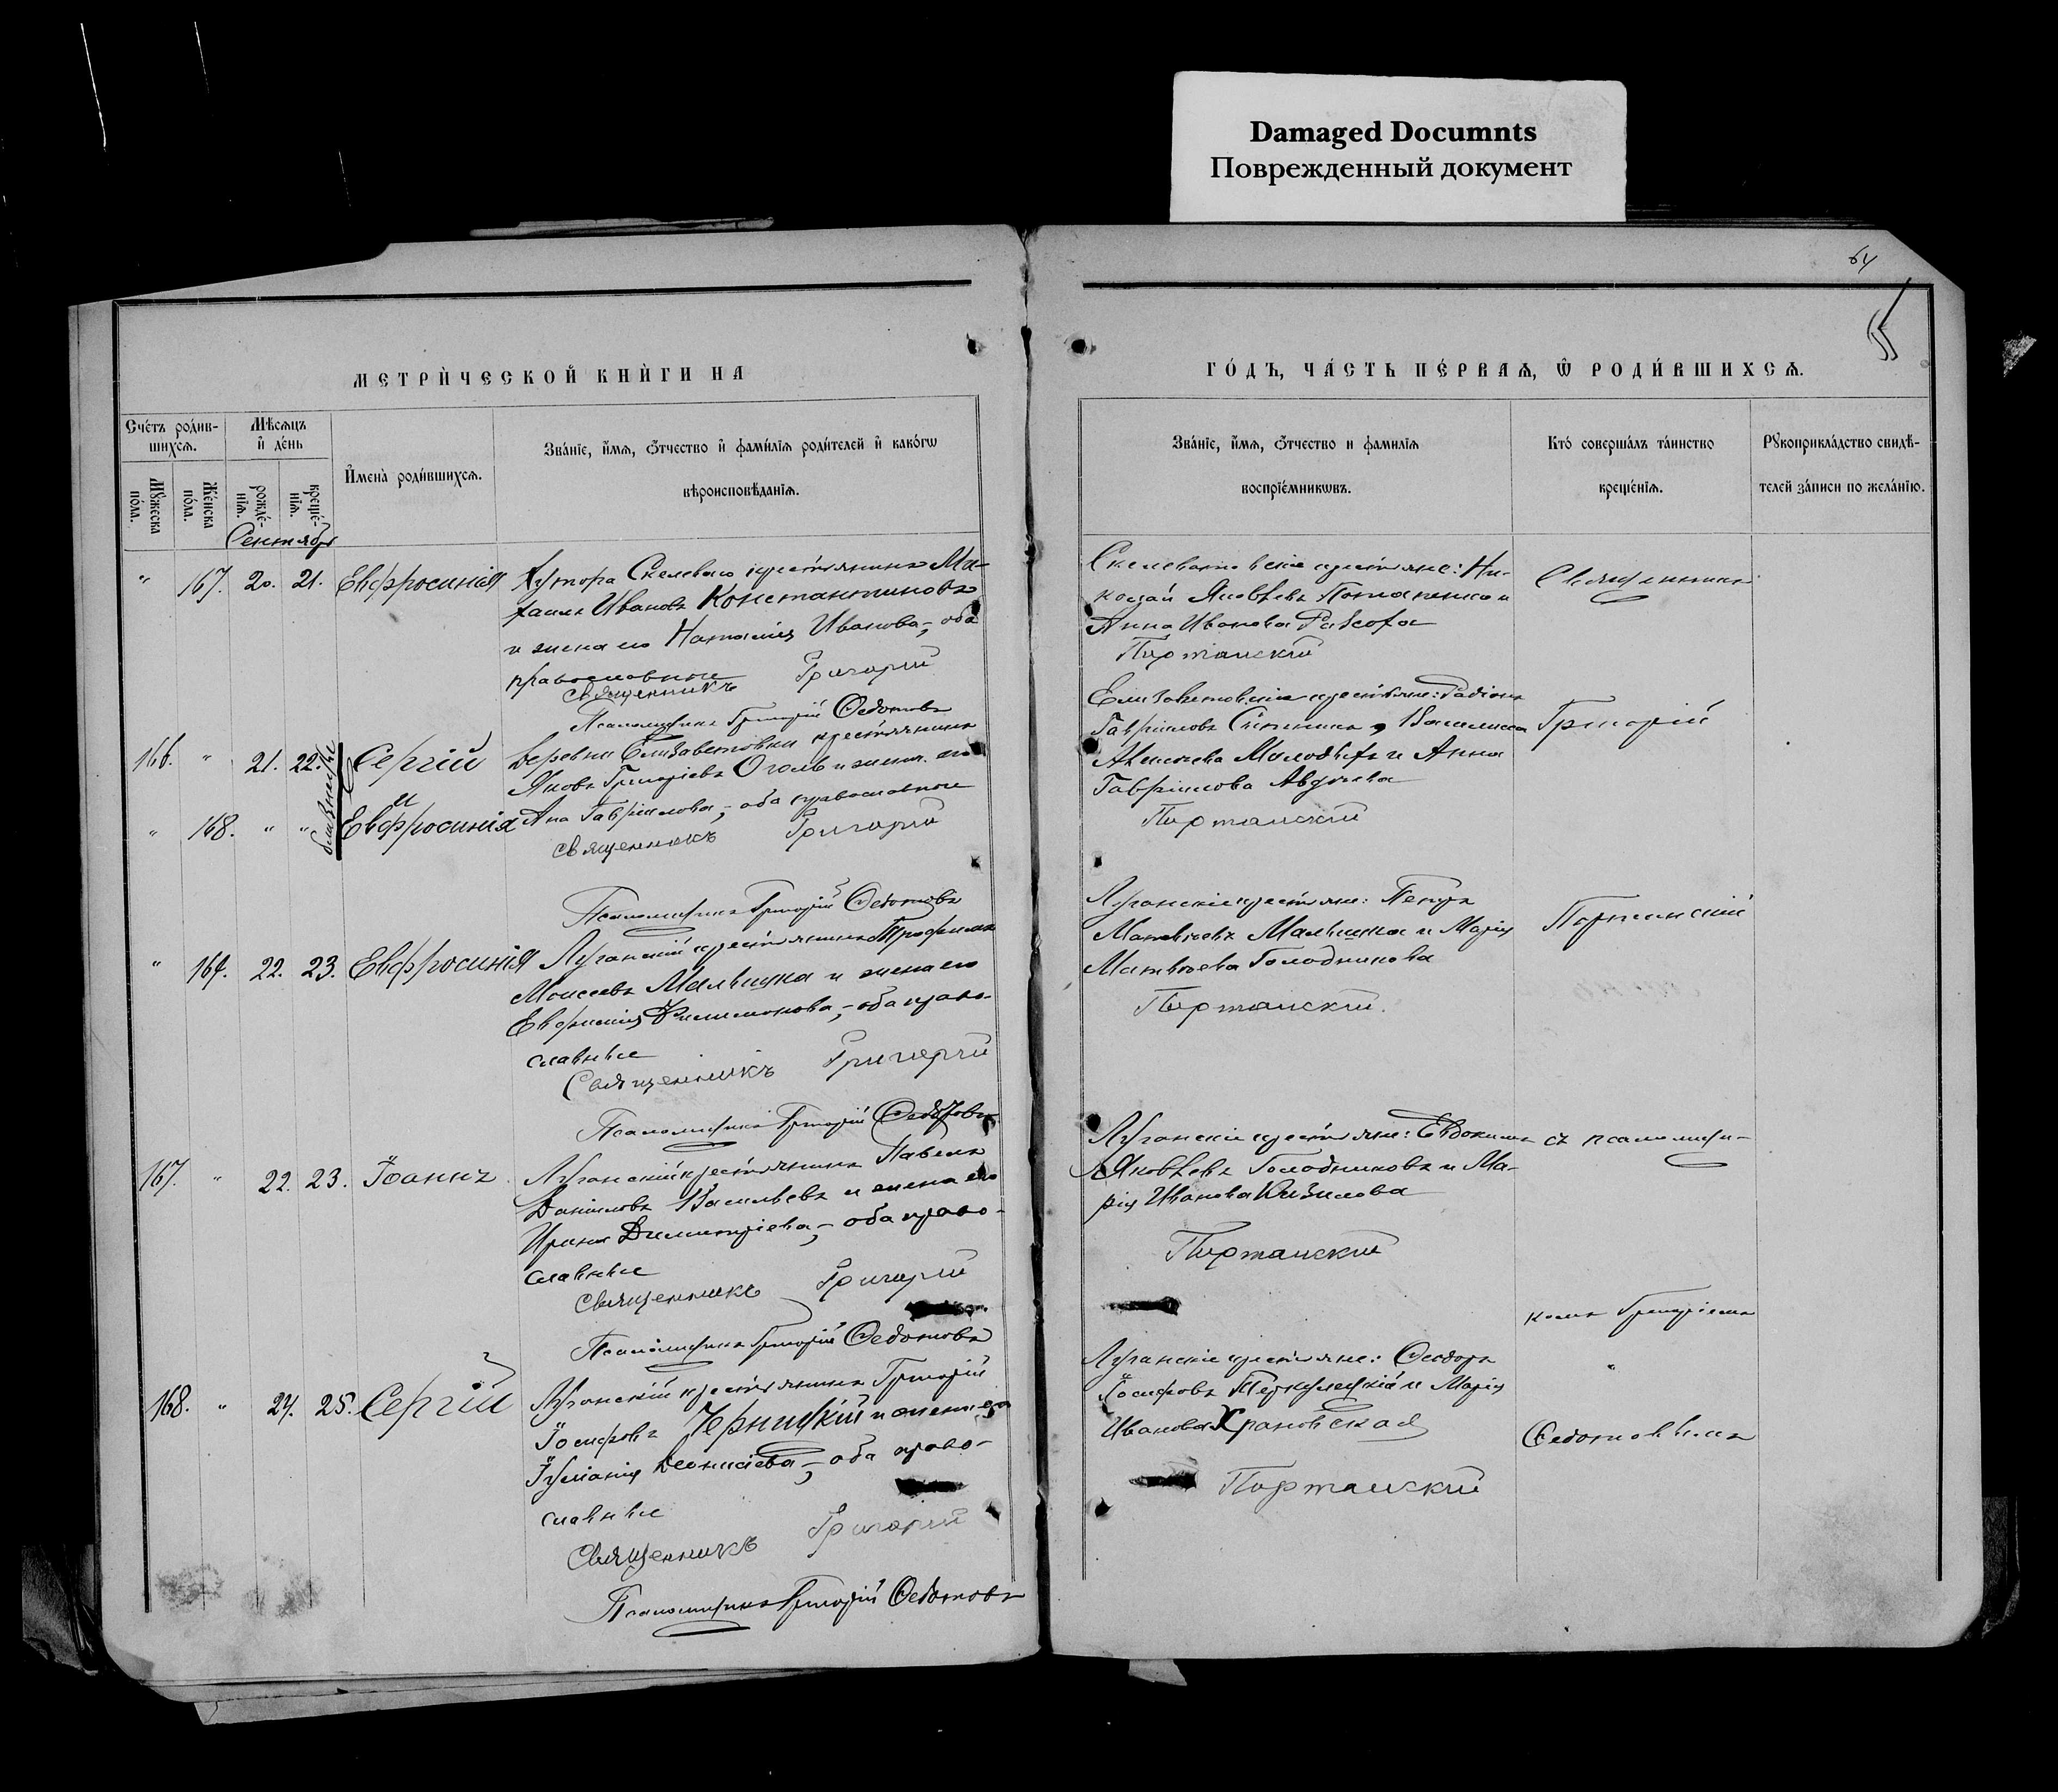 Damaged Documnts
Поврежденный документ
64
МЕТРИЧЕСКОЙ КНИГИ НА
ГОДЪ, ЧАСТЬ ПЕРВАЯ, Ѡ РОДИВШИХСЯ.
Счетъ родив-
шихся.
Мужеска
пола.
Женска
пола.
Мѣсяцъ
и день
рожде-
нія.
креще-
нія.
Имена родившихся.
Званіе, имя, отчество и фамилія родителей и какогω
вѣроисповѣданія.
Званіе, имя, отчество и фамилія
воспріемникωвъ.
Кто совершалъ таинство
крещенія.
Рукоприкладство свидѣ-
телей записи по желанію.
Сентябрь
" 167. 20. 21. Евфросинія
Хутора Скелеваго крестьянинъ Ми-
хаилъ Ивановъ Константиновъ
и жена его Наталія Иванова, - оба
православные
Священникъ Григорій
Псаломщикъ Григорій Федотовъ
Скелеватовскіе крестьяне: Ни-
колай Яковлевъ Потапенко и
Анна Иванова
Портанскій
Священникъ
166. " 21. 22. Сергій
и
" 168. " " Евфросинія
близнецы
Деревни Елизаветовки крестьянинъ
Яковъ Григоріевъ Оголь и жена его
Анна Гавріилова, - оба православные
Священникъ Григорій
Псаломщикъ Григорій Федотовъ
Елизаветовскіе крестьяне: Родіонъ
Гавріиловъ Василисса
и Анна
Гавріилова Авдѣева
Портанскій
Григорій
" 169. 22. 23. Евфросинія
Луганскій крестьянинъ Трофимъ
Моисеевъ Мальицка и жена его
Евфимія Филимонова, - оба право-
славные
Священникъ Григорій
Псаломщикъ Григорій Федотовъ
Луганскіе крестьяне: Петръ
Матвѣевъ Мальицка и Марія
Матвѣева Голодникова
Портанскій.
Портанскій
167. " 22. 23. Іоаннъ
Луганскій крестьянинъ Павелъ
Даніиловъ Васильевъ и жена его
Ирина Димитріева, - оба право-
славные
Священникъ Григорій
Псаломщикъ Григорій Федотовъ
Луганскіе крестьяне: Евдокимъ
Яковлевъ Голодниковъ и Ма-
рія Иванова
Портанскій
съ псаломщи-
комъ Григоріемъ
"
Федотовымъ
168. " 24. 25. Сергій
Луганскій крестьянинъ Григорій
Іосифовъ Черницкій и жена его
Іуліанія Діонисіева, - оба право-
славные
Священникъ Григорій
Псаломщикъ Григорій Федотовъ
Луганскіе крестьяне: Феодоръ
Іосифовъ и Марія
Иванова Храновская
Портанскій